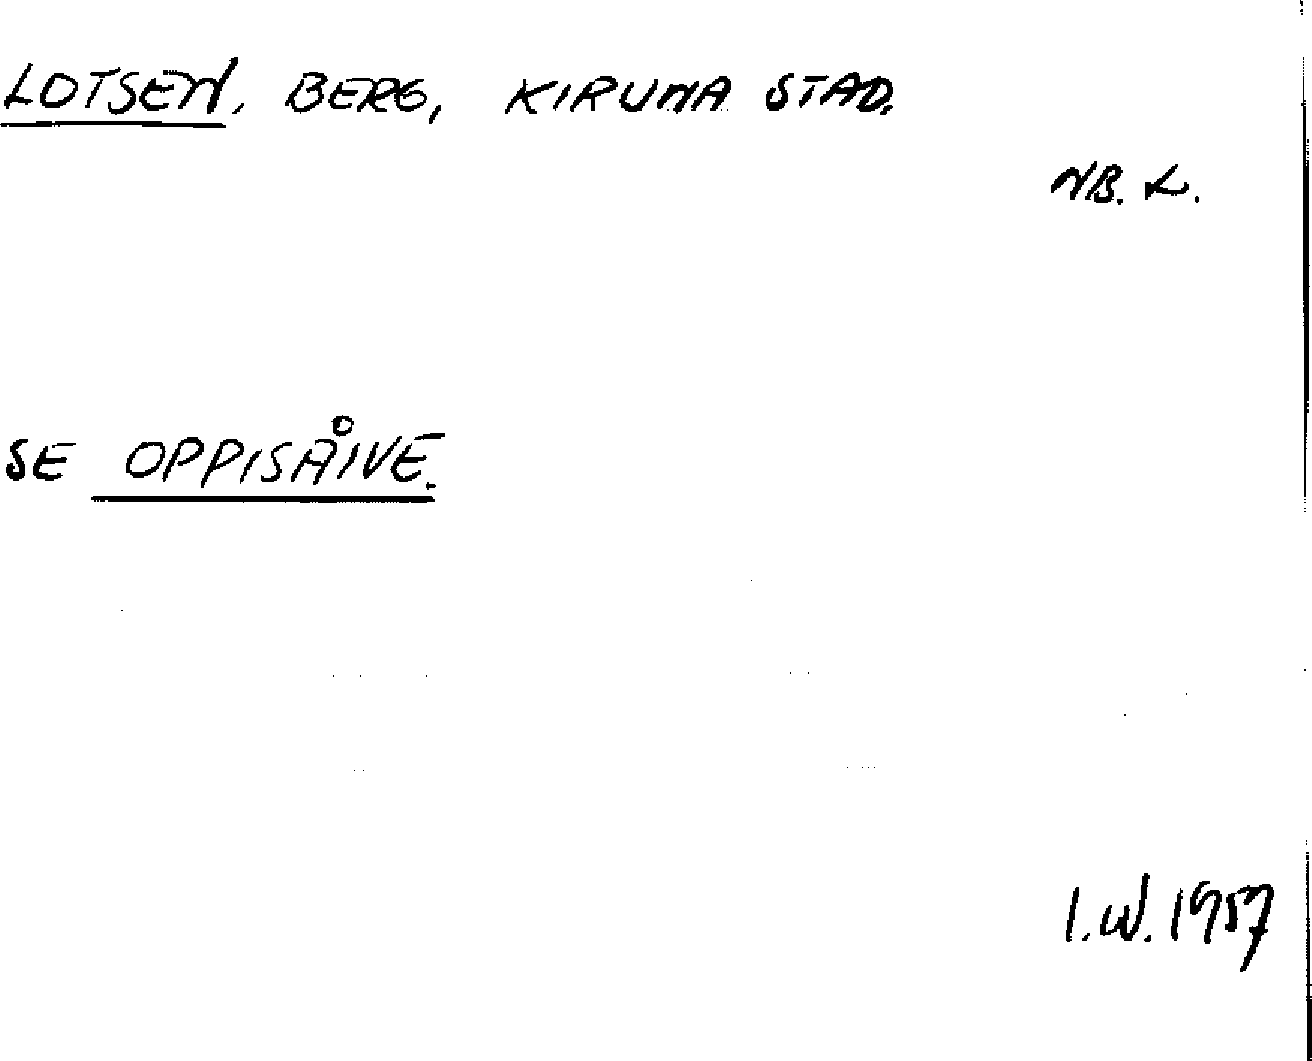 LOTSEN, BERG, KIRUNA STAD.
NB. L.
SE OPPISÅIVE.
I.W. 1957